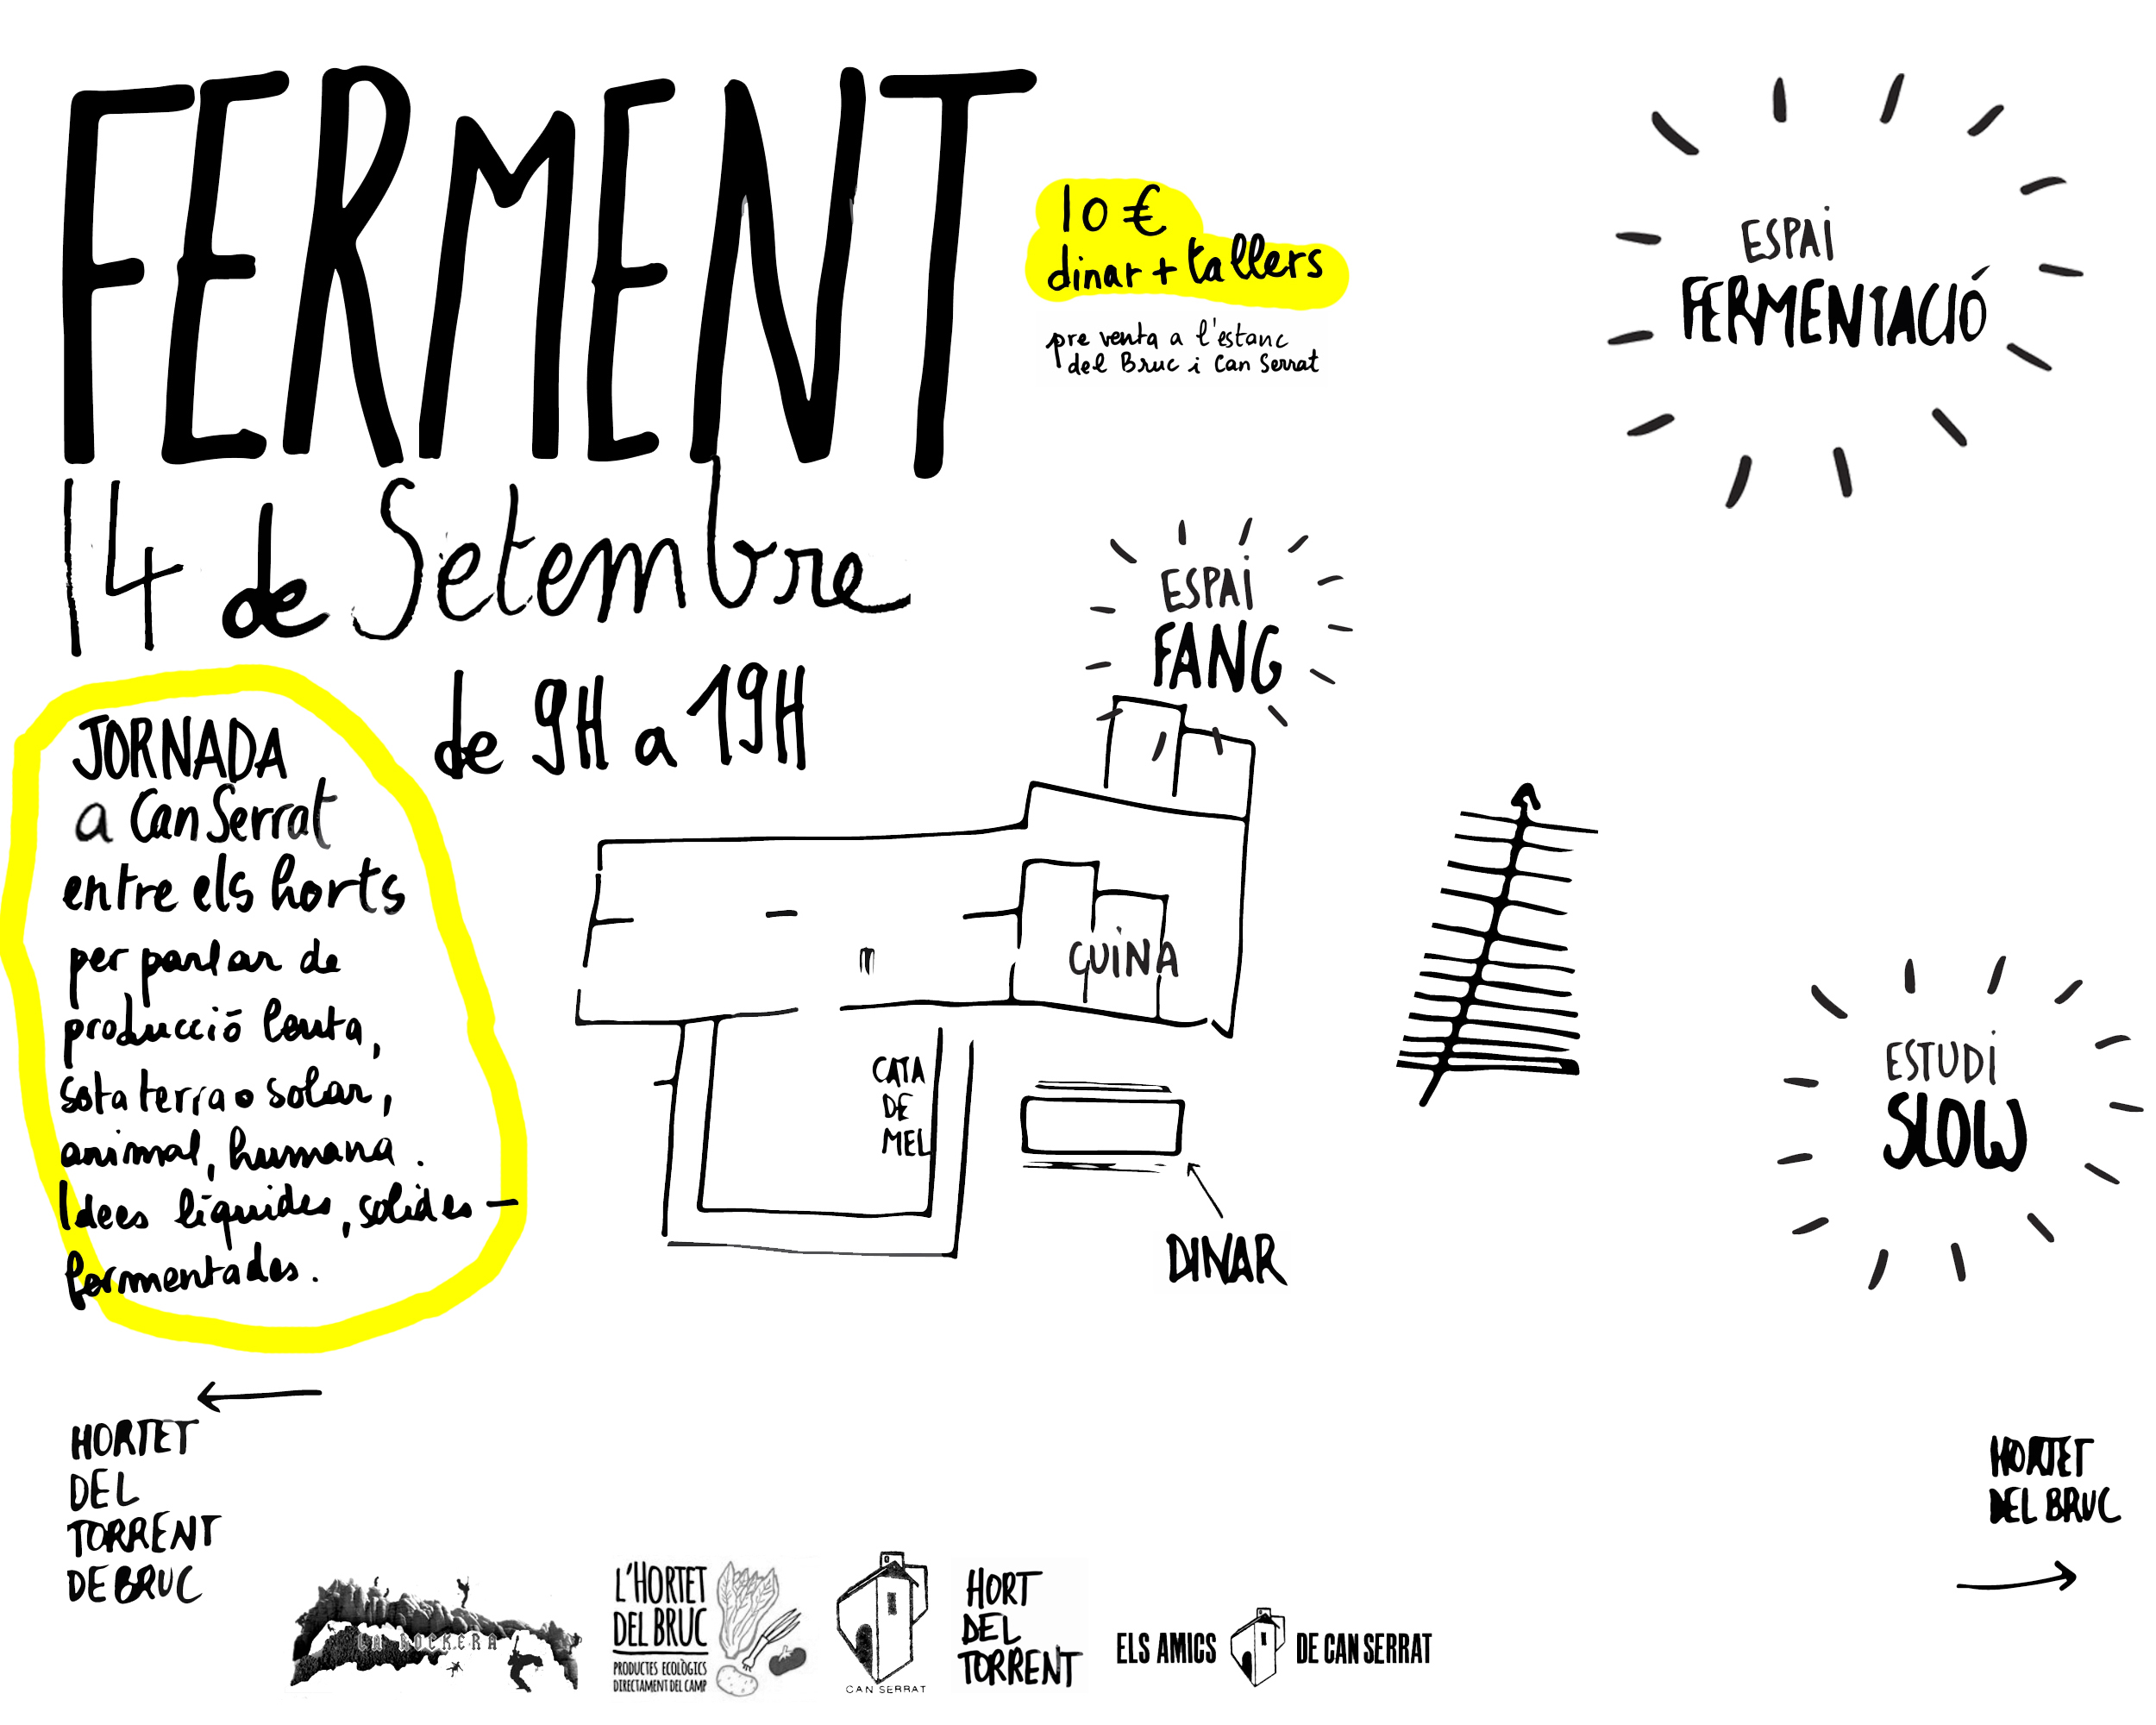 FERMENT
10 €
dinar + tallers
pre venta a l'estanc
del Bruc i Can Serrat
ESPAI
FERMENTACIÓ
14 de Setembre
de 9H a 19H
ESPAI
FANG
JORNADA
a Can Serrat
entre els horts
per parlar de
producció lenta,
sota terra o solar,
animal, humana.
Idees líquides, solides –
fermentades.
CUINA
CATA
DE
MEL
DINAR
ESTUDI
SLOW
HORTET
DEL
TORRENT
DE BRUC
HORTET
DEL BRUC
LA ROCKERA
L'HORTET
DEL BRUC
PRODUCTES ECOLÒGICS
DIRECTAMENT DEL CAMP
CAN SERRAT
HORT
DEL
TORRENT
ELS AMICS DE CAN SERRAT